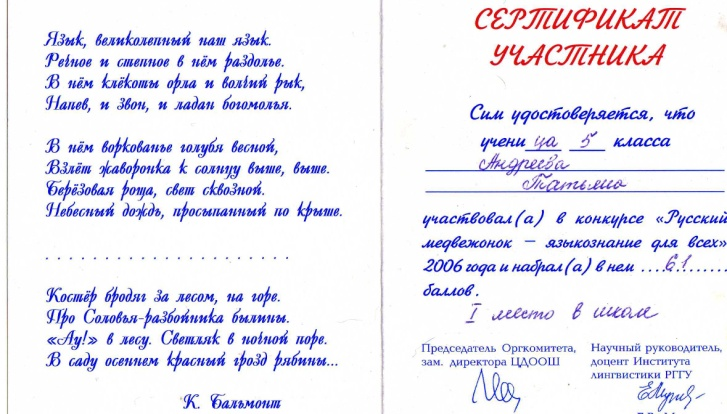 Язык, великолепный наш язык.
Речное и степное в нём раздолье.
В нём клёкоты орла и волчий рык,
Напев, и звон, и ладан богомолья.
В нём воркованье голубя весной,
Взлёт жаворонка к солнцу выше, выше.
Берёзовая роща, свет сквозной.
Небесный дождь, просыпанный по крыше.
. . . . . . . . . . . . . . . . . . . . . . . .
Костёр бродяг за лесом, на горе.
Про Соловья-разбойника былины.
«Ау!» в лесу. Светляк в ночной поре.
В саду осеннем красный грозд рябины...
К. Бальмонт
СЕРТИФИКАТ
УЧАСТНИКА
Сим удостоверяется, что
учени ца 5 класса
Андреева
Татьяна
участвовал(а) в конкурсе «Русский
медвежонок – языкознание для всех»
2006 года и набрал(а) в нем ....61......
баллов.
I место в школе
Председатель Оргкомитета,
зам. директора ЦДООШ
Научный руководитель,
доцент Института
лингвистики РГГУ